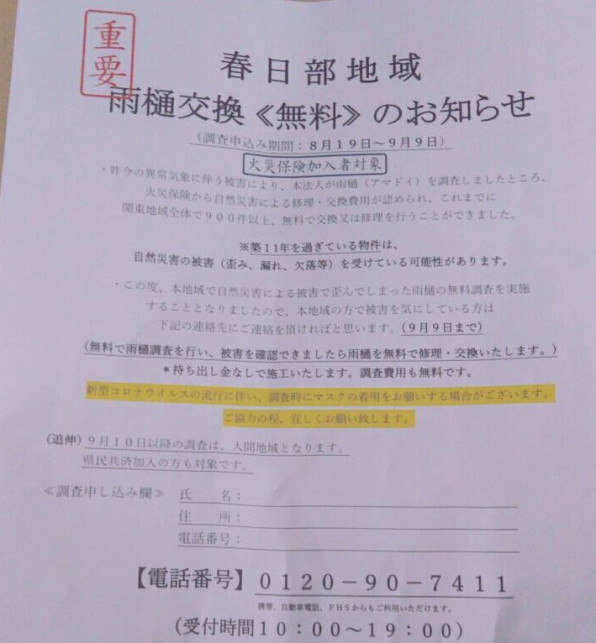 重要
春日部地域
雨樋交換《無料》のお知らせ
(調査申込み期間：８月１９日～９月９日)
火災保険加入者対象
・昨今の異常気象に伴う被害により、本法人が雨樋（アマドイ）を調査しましたところ、
火災保険から自然災害による修理・交換費用が認められ、これまでに
関東地域全体で９００件以上、無料で交換又は修理を行うことができました。
※築１１年を過ぎている物件は、
自然災害の被害（歪み、漏れ、欠落等）を受けている可能性があります。
・この度、本地域で自然災害による被害で歪んでしまった雨樋の無料調査を実施
することとなりましたので、本地域の方で被害を気にしている方は
下記の連絡先にご連絡を頂ければと思います。（９月９日まで）
(無料で雨樋調査を行い、被害を確認できましたら雨樋を無料で修理・交換いたします。)
＊持ち出し金なしで施工いたします。調査費用も無料です。
新型コロナウイルスの流行に伴い、調査時にマスクの着用をお願いする場合がございます。
ご協力の程、宜しくお願い致します。
(追伸) ９月１０日以降の調査は、入間地域となります。
県民共済加入の方も対象です。
≪調査申し込み欄≫ 氏　名：
住　所：
電話番号：
【電話番号】０１２０－９０－７４１１
携帯、自動車電話、ＰＨＳからもご利用いただけます。
(受付時間１０：００～１９：００)